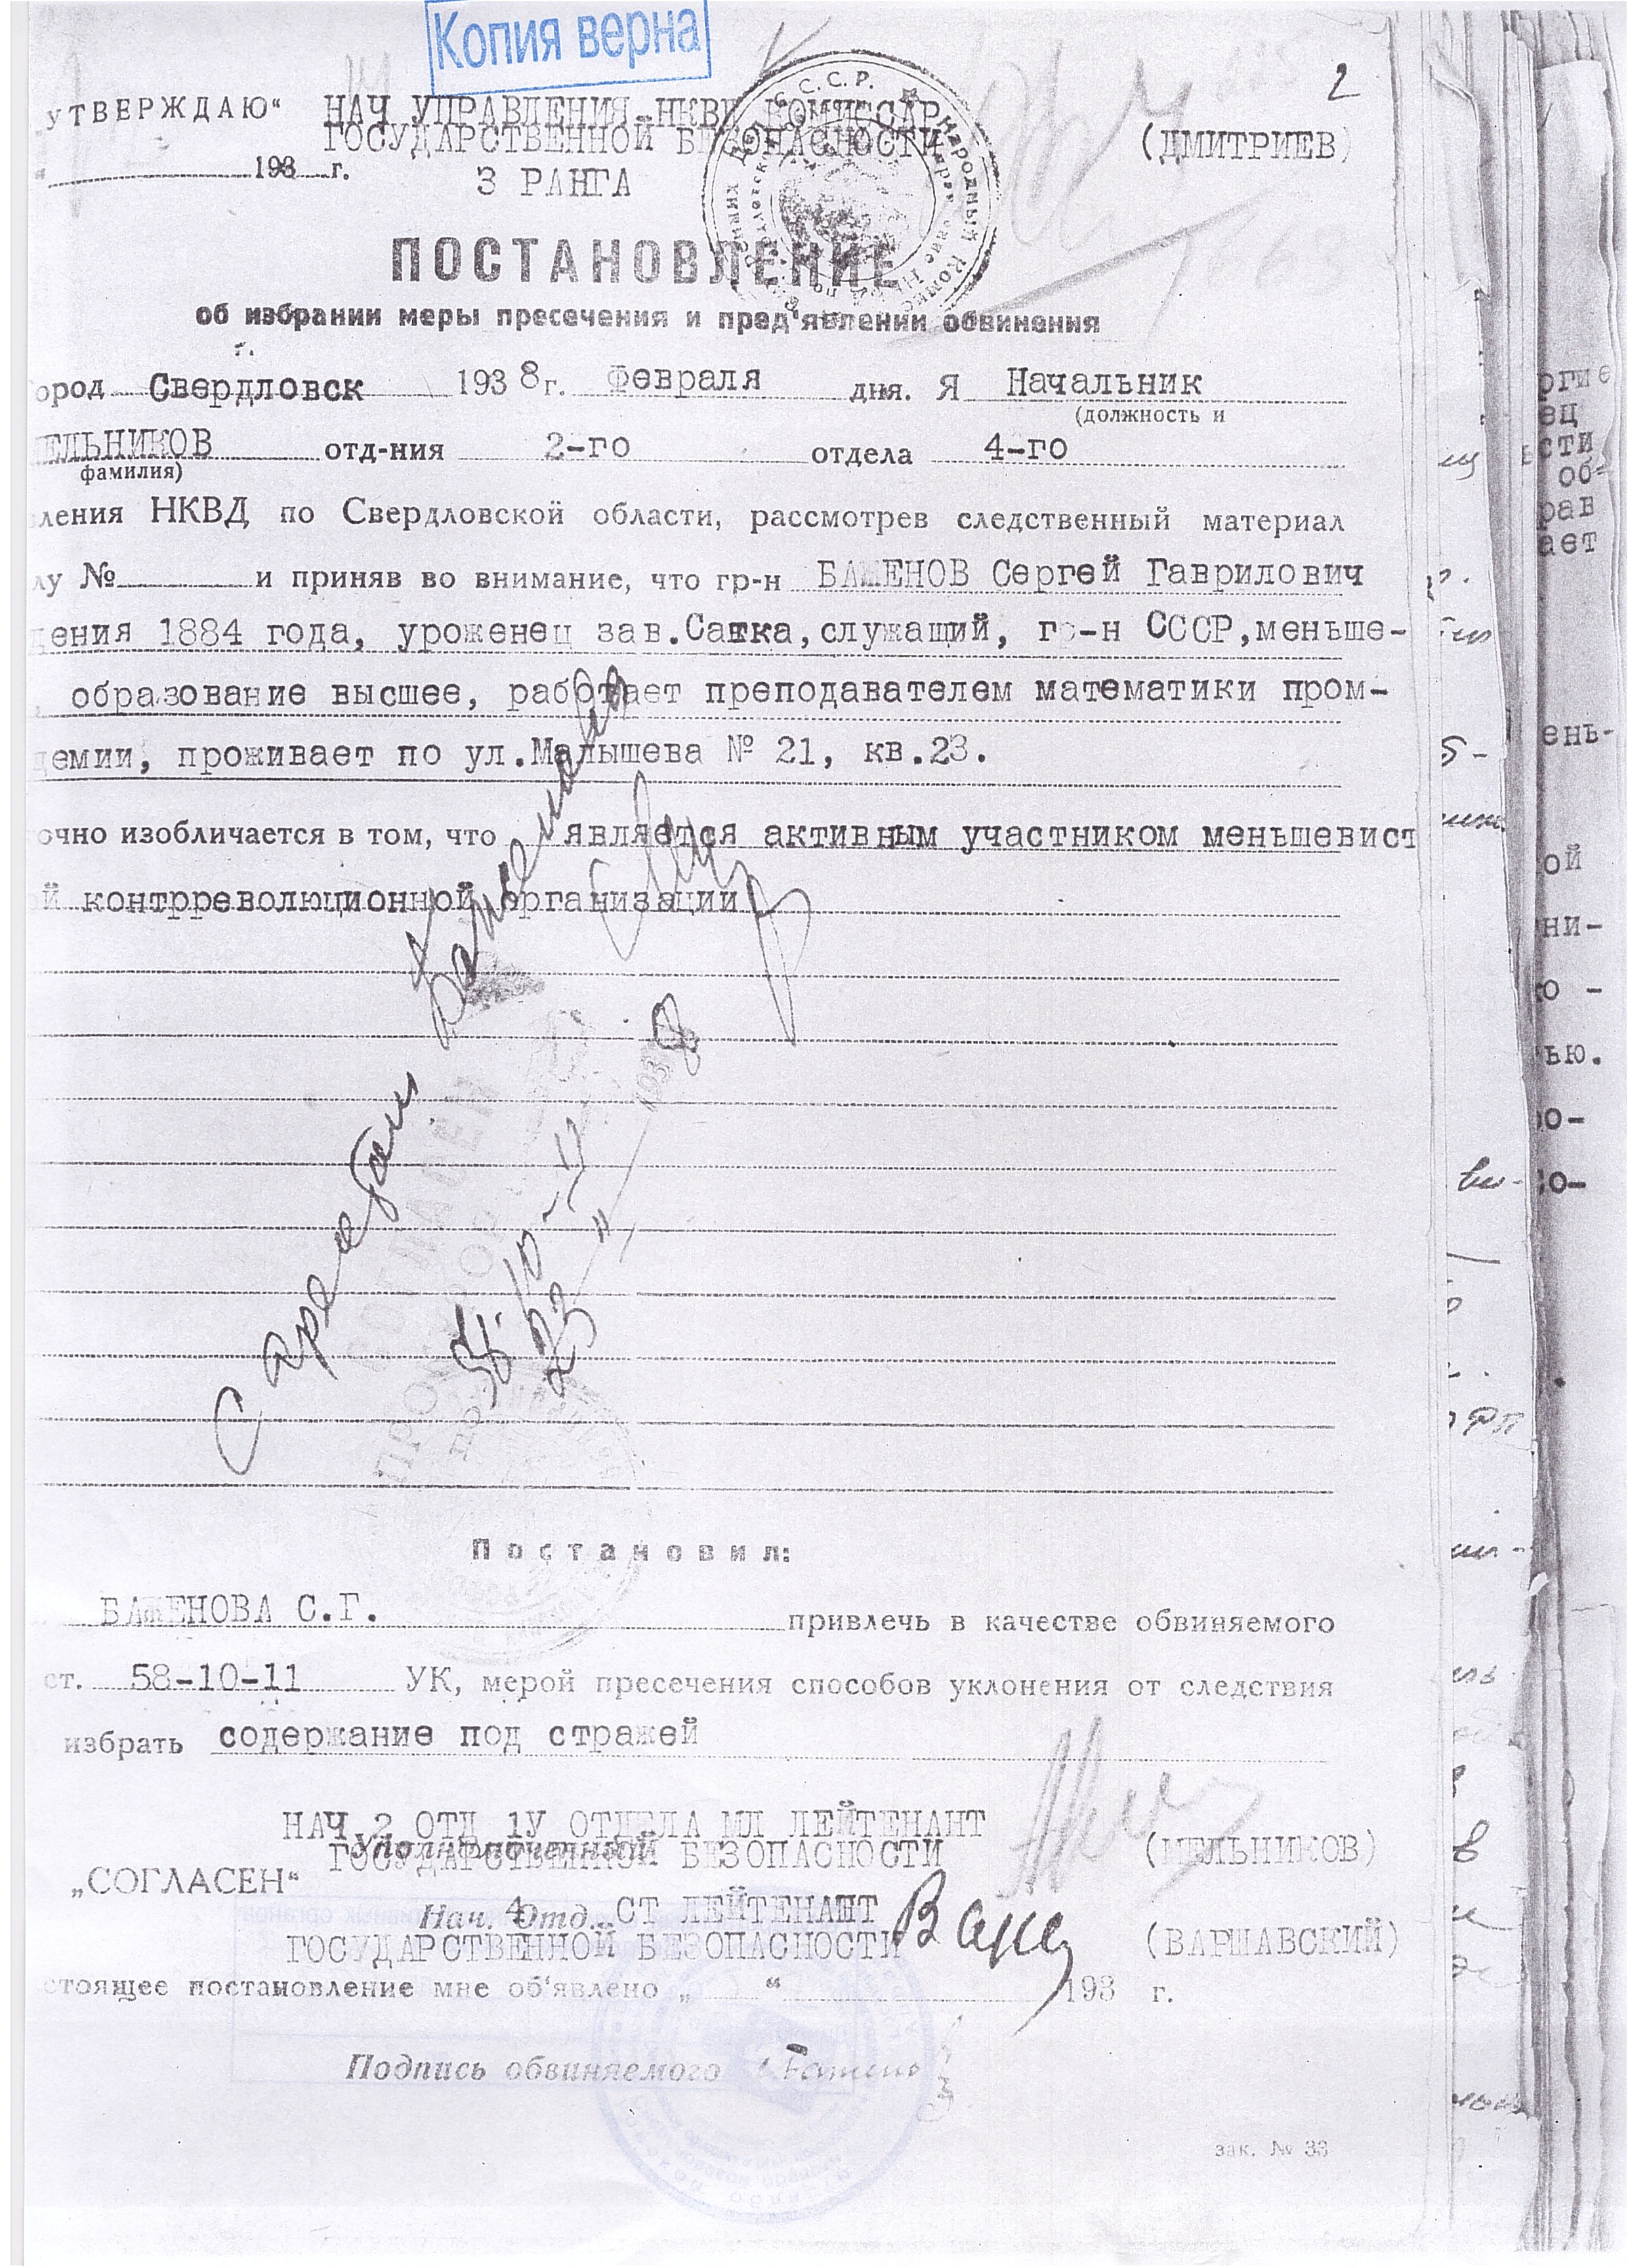 Копия верна
2
„УТВЕРЖДАЮ“ НАЧ УПРАВЛЕНИЯ НКВД КОМИССАР
ГОСУДАРСТВЕННОЙ БЕЗОПАСНОСТИ (ДМИТРИЕВ)
193 г. 3 РАНГА
ПОСТАНОВЛЕНИЕ
об избрании меры пресечения и пред‘явлении обвинения
ород Свердловск 1938 г. Февраля дня. Я Начальник
(должность и
ЕЛЬНИКОВ отд-ния 2-го отдела 4-го
фамилия)
ления НКВД по Свердловской области, рассмотрев следственный материал
лу № и приняв во внимание, что гр-н БАЖЕНОВ Сергей Гаврилович
дения 1884 года, уроженец зав.Сатка, служащий, гр-н СССР, меньше-
, образование высшее, работает преподавателем математики пром-
демии, проживает по ул.Малышева № 21, кв.23.
очно изобличается в том, что является активным участником меньшевист
ой контрреволюционной организации
С арестом Баженова
СОГЛАСЕН
58-10-11
23 " 1938
Постановил:
БАЖЕНОВА С.Г. привлечь в качестве обвиняемого
ст. 58-10-11 УК, мерой пресечения способов уклонения от следствия
избрать содержание под стражей
НАЧ 2 ОТД 1У ОТДЕЛА МЛ ЛЕЙТЕНАНТ
Уполномоченный
ГОСУДАРСТВЕННОЙ БЕЗОПАСНОСТИ (МЕЛЬНИКОВ)
„СОГЛАСЕН“
Нач. 4 Отд. СТ ЛЕЙТЕНАНТ
ГОСУДАРСТВЕННОЙ БЕЗОПАСНОСТИ (ВАРШАВСКИЙ)
стоящее постановление мне об‘явлено „ “ 193 г.
Подпись обвиняемого
зак. № 33